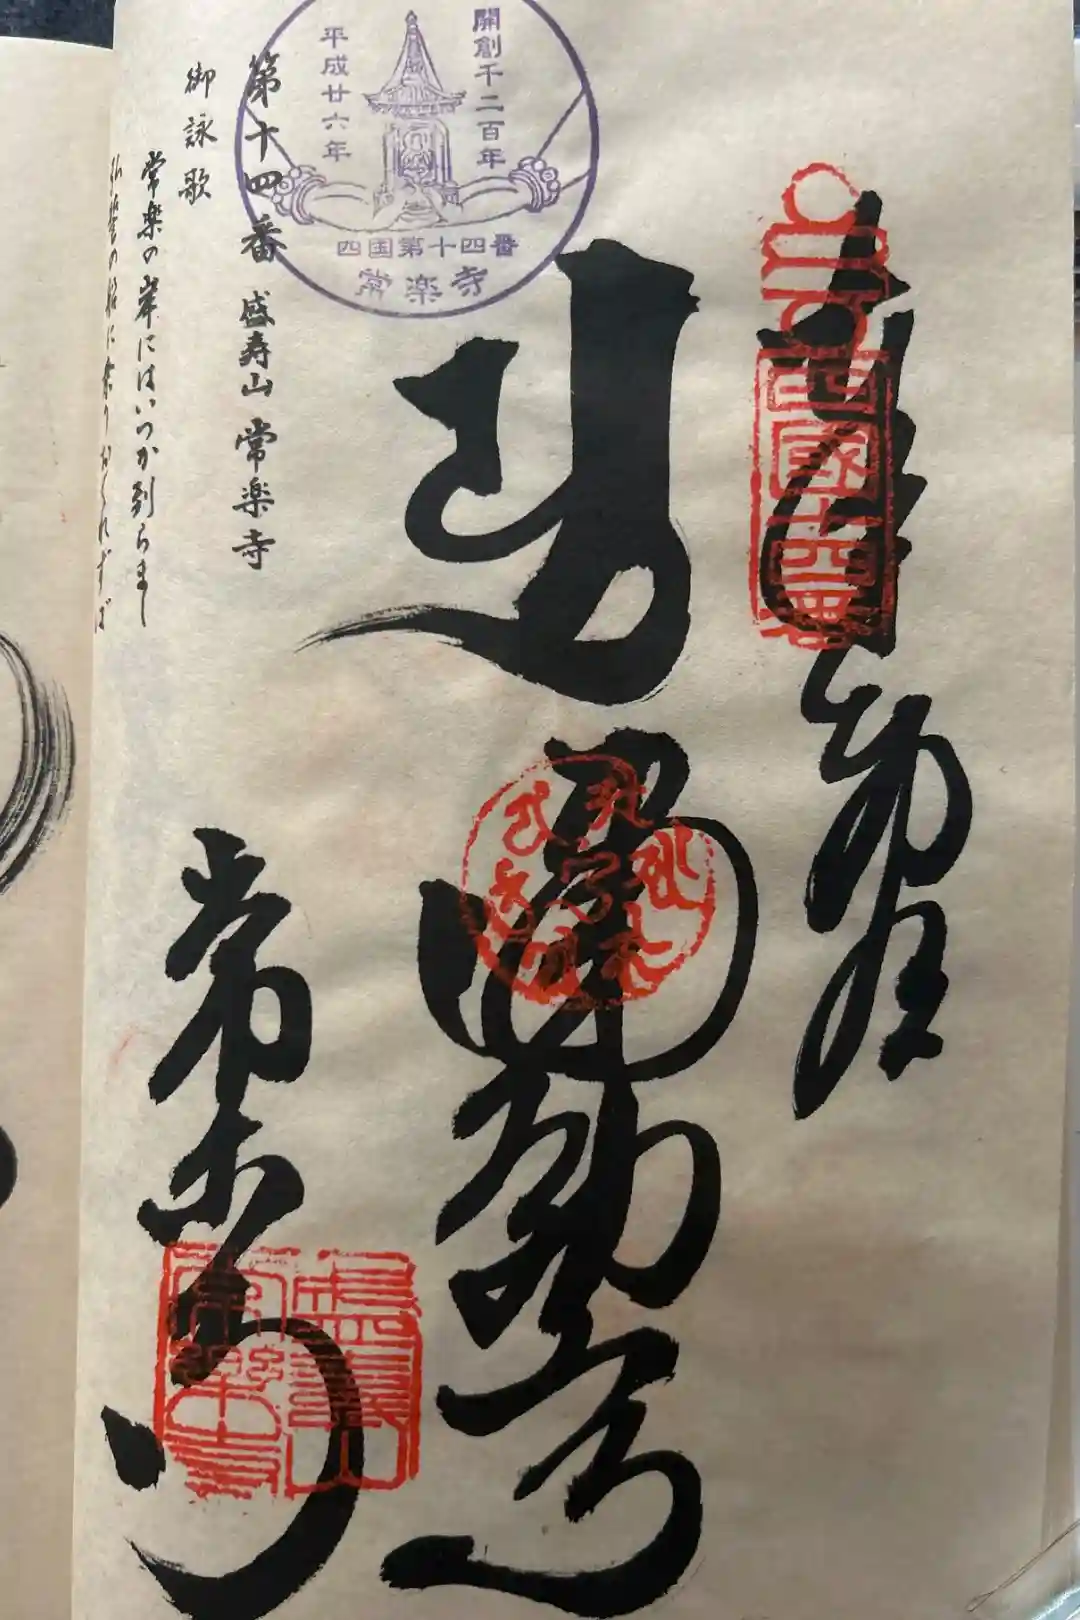 奉拝
四國十四番
開創千二百年
平成廿六年
四国第十四番
常楽寺
弥勒尊
第十四番 盛寿山 常楽寺
御詠歌
常楽の岸にはいつか到らまし
弘誓の船に乗りおくれずば
常楽寺
盛壽山
常樂寺